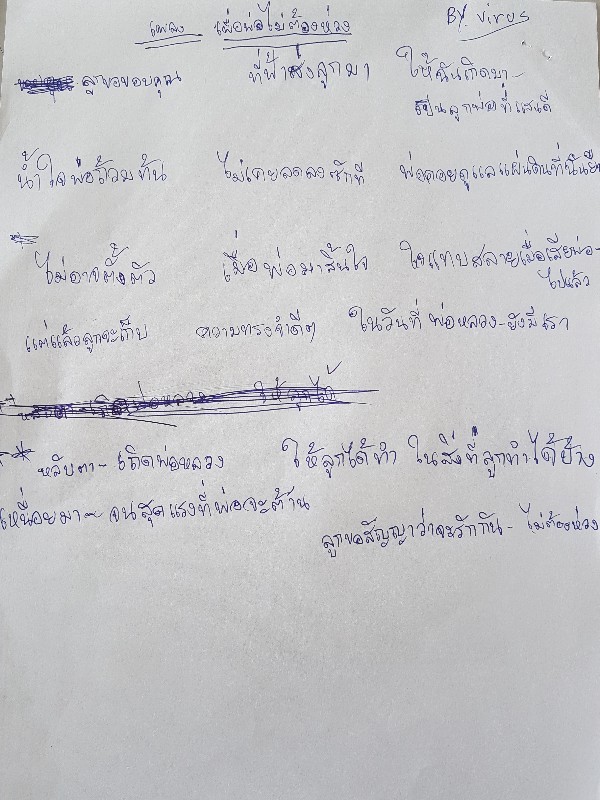 เพลง เพื่อพ่อไม่ต้องห่วง BY Virus
ลูกขอขอบคุณ ที่ฟ้าส่งลูกมา ให้ฉันเกิดมา-
เป็นลูกพ่อที่แสนดี
น้ำใจพ่อร้วมท้น ไม่เคยลดลงซักที พ่อคอยดูแลแผ่นดินที่ฉันยืน
ไม่อาจตั้งตัว เมื่อพ่อมาสิ้นใจ ใจแทบสลายเมื่อเสียพ่อ-
ไปแล้ว
แต่แล้วลูกจะเก็บ ความทรงจำดีๆ ในวันที่พ่อหลวง-ยังมีเรา
หลับตา- เถิดพ่อหลวง ให้ลูกได้ทำ ในสิ่งที่ลูกทำได้บ้าง
เหนื่อยมา- จนสุดแรงที่พ่อจะต้าน
ลูกขอสัญญาว่าจะรักกัน- ไม่ต้องห่วง